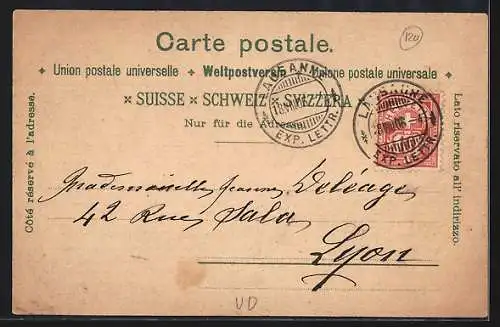 120
Carte postale.
Union postale universelle Weltpostverein Unione postale universale
SUISSE × SCHWEIZ × SVIZZERA
Nur für die Adresse.
Côté réservé à l'adresse.
Lato riservato all' indirizzo.
LAUSANNE
EXP. LETTR.
LAUSANNE
EXP. LETTR.
Mademoiselle Jeanne Deléage
42 Rue Sala
Lyon
VD